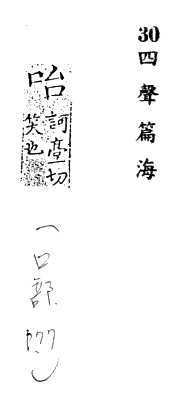 30四聲篇海
咍
訶臺切
笑也
(口部